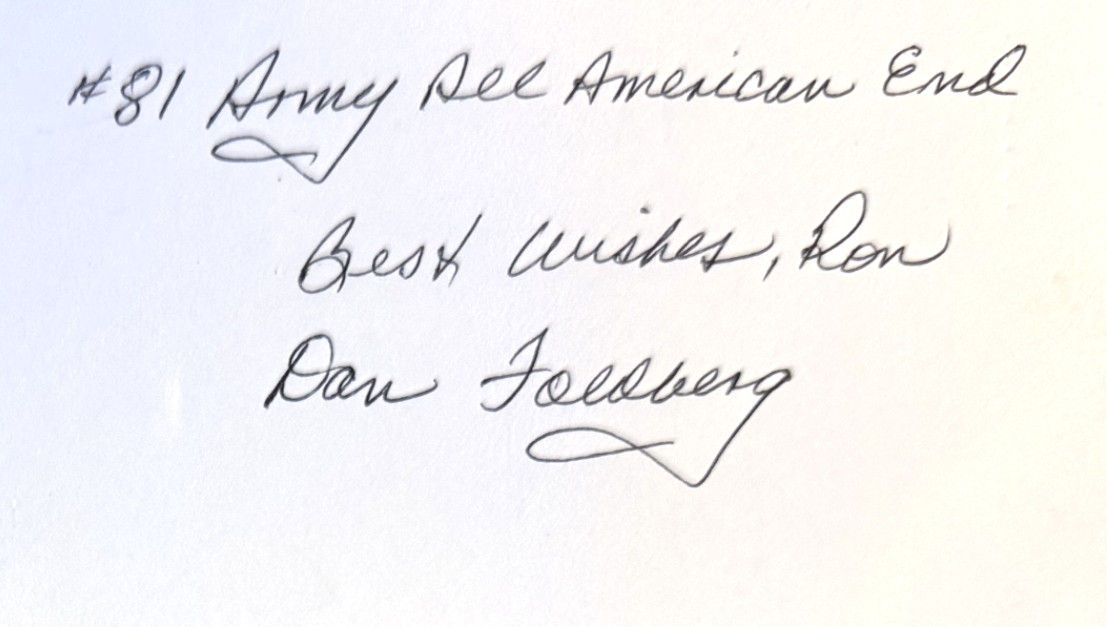 #81 Army All American End
Best Wishes, Ron
Dan Foldberg